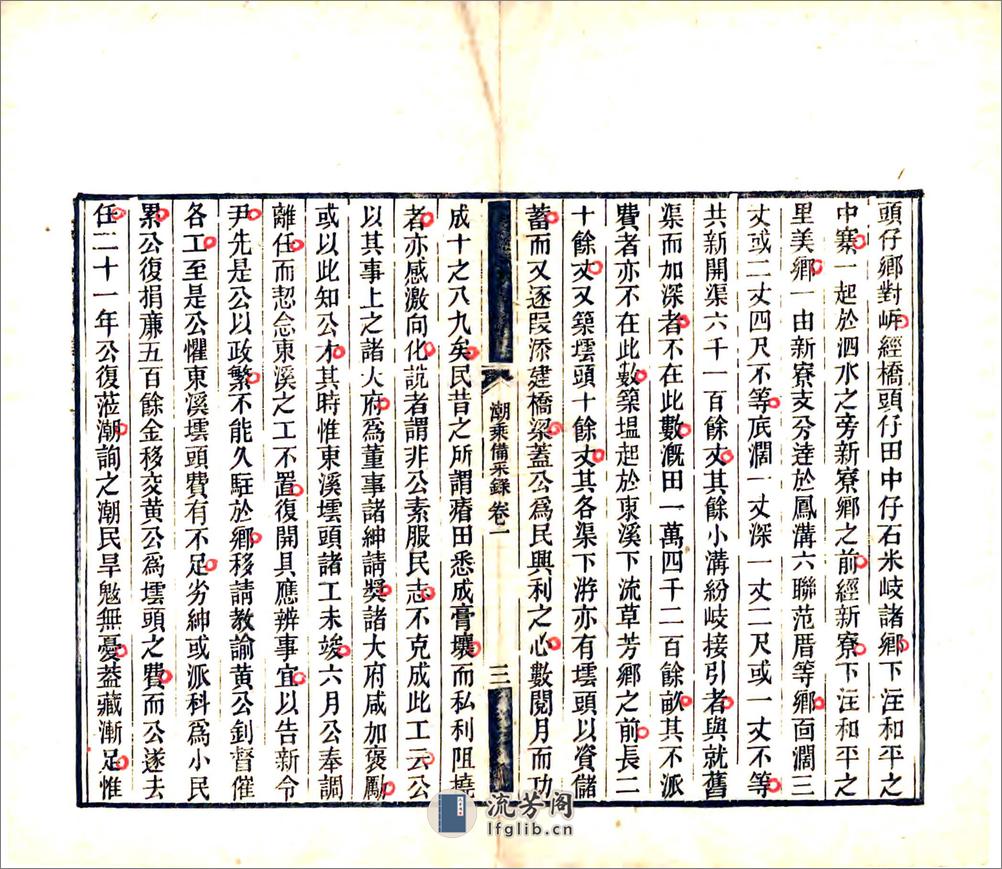 頭仔鄉對岍經橋頭仔田中仔石米岐諸鄉下注和平之
中寨一起於泗水之旁新寮鄉之前經新寮下注和平之
里美鄉一由新寮支分逹於鳳溝六聯范厝等鄉面濶三
丈或二丈四尺不等底濶一丈深一丈二尺或一丈不等
共新開渠六千一百餘丈其餘小溝紛岐接引者與就舊
渠而加深者不在此數溉田一萬四千二百餘畝其不派
費者亦不在此數築堒起於東溪下流草芳鄉之前長二
十餘丈又築壜頭十餘丈其各渠下游亦有壜頭以資儲
蓄而又逐段添建橋梁蓋公爲民興利之心數閱月而功
潮乘備采錄 卷一
三
成十之八九矣民昔之所謂瘠田悉成膏壤而私利阻撓
者亦感激向化說者謂非公素服民志不克成此工云公
以其事上之諸大府爲董事諸紳請獎諸大府咸加褒勵
或以此知公才其時惟東溪壜頭諸工未竣六月公奉調
離任而惄念東溪之工不置復開具應辨事宜以告新令
尹先是公以政繁不能久駐於鄉移請教諭黃公釗督催
各工至是公懼東溪壜頭費有不足劣紳或派科爲小民
累公復捐廉五百餘金移交黃公爲壜頭之費而公遂去
任二十一年公復蒞潮詢之潮民旱魃無憂葢藏漸足惟
流芳阁
lfglib.cn